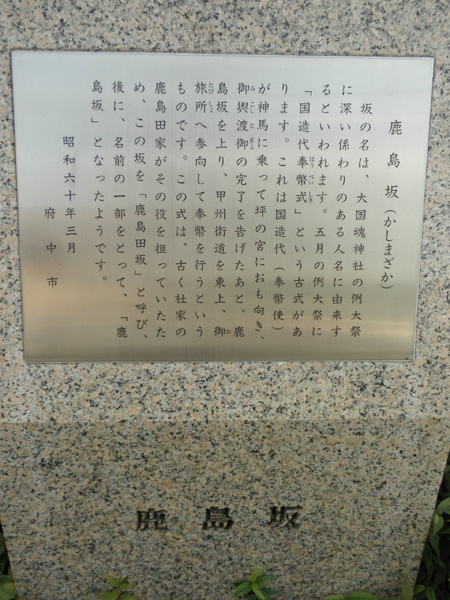 鹿島坂(かしまざか)
坂の名は、大国魂神社の例大祭
に深い係わりのある人名に由来す
るといわれます。五月の例大祭に
「国造代奉幣式」という古式があ
ります。これは国造代(奉幣使)
が神馬に乗って坪の宮におも向き、
御輿渡御の完了を告げたあと、鹿
島坂を上り、甲州街道を東上、御
旅所へ参向して奉幣を行うという
ものです。この式は、古く社家の
鹿島田家がその役を担っていたた
め、この坂を「鹿島田坂」と呼び、
後に、名前の一部をとって、「鹿
島坂」となったようです。
昭和六十年三月
府中市
鹿島坂